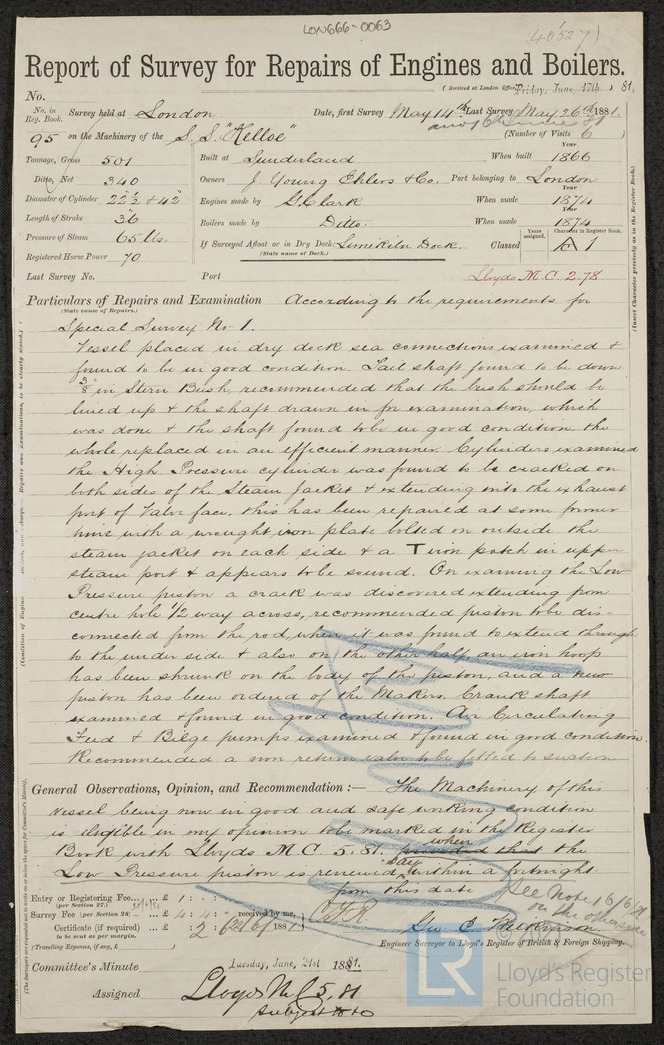 LON666-0063
(40527)
Report of Survey for Repairs of Engines and Boilers.
(Received at London Office, Friday, June, 17th 81.
No.
No. in Reg. Book. Survey held at London Date, first Survey May 14th Last Survey May 26th 1881.
and 16th June 81
95 on the Machinery of the S.S. "Kelloe" (Number of Visits 6)
Tonnage, Gross 501 Built at Sunderland When built Year 1866
Ditto, Net 340 Owners J. Young Ehlers & Co. Port belonging to London
Diameter of Cylinder 22½" & 42" Engines made by G. Clark When made Year 1874
Length of Stroke 36 Boilers made by Ditto. When made Year 1874
Pressure of Steam 65 lbs. If Surveyed Afloat or in Dry Dock Limekiln Dock. Classed Years assigned. Character in Register Book. A 1
(State name of Dock.)
Registered Horse Power 70
Last Survey No. Port Lloyds M.C. 2.78
Particulars of Repairs and Examination According to the requirements for
(State cause of Repairs.)
Special Survey No 1.
Vessel placed in dry dock sea connections examined &
found to be in good condition. Tail shaft found to be down
3/8 in Stern Bush, recommended that the bush should be
lined up & the shaft drawn in for examination, which
was done & the shaft found to be in good condition. the
whole replaced in an efficient manner. Cylinders examined
the High Pressure cylinder was found to be cracked on
both sides of the Steam Jacket & extending into the exhaust
port of Valve face. this has been repaired at some former
time with a wrought iron plate bolted on outside the
steam jacket on each side & a T iron patch in upper
steam port & appears to be sound. On examining the Low
Pressure piston a crack was discovered extending from
centre hole ½ way across, recommended piston to be dis-
connected from the rod, when it was found to extend through
to the under side & also on the other half, an iron hoop
has been shrunk on the body of the piston, and a new
piston has been ordered of the Makers. Crank shaft
examined & found in good condition. Air Circulating
Feed & Bilge pumps examined & found in good condition.
Recommended a non return valve to be fitted to suction
General Observations, Opinion, and Recommendation :— The Machinery of this
Vessel being now in good and safe working condition
is eligible in my opinion to be marked in the Register
Book with Lloyds M.C. 5.81. provided that when the
Low Pressure piston is renewed, say within a fortnight
from this date
See Note 16/6/81
on the other side
Entry or Registering Fee... £ 1 : :
(per Section 27.)
Survey Fee (per Section 28) ... £ 4 : 4 : received by me,
Certificate (if required) ... : 2 6 188
to be sent as per margin.
(Travelling Expenses, if any, £ )
Engineer Surveyor to Lloyd's Register of British & Foreign Shipping.
Committee's Minute Tuesday, June, 21st 1881.
Assigned Lloyds M.C. 5.81
Subject
(Insert Character precisely as in the Register Book.)
LR
Lloyd's Register
Foundation